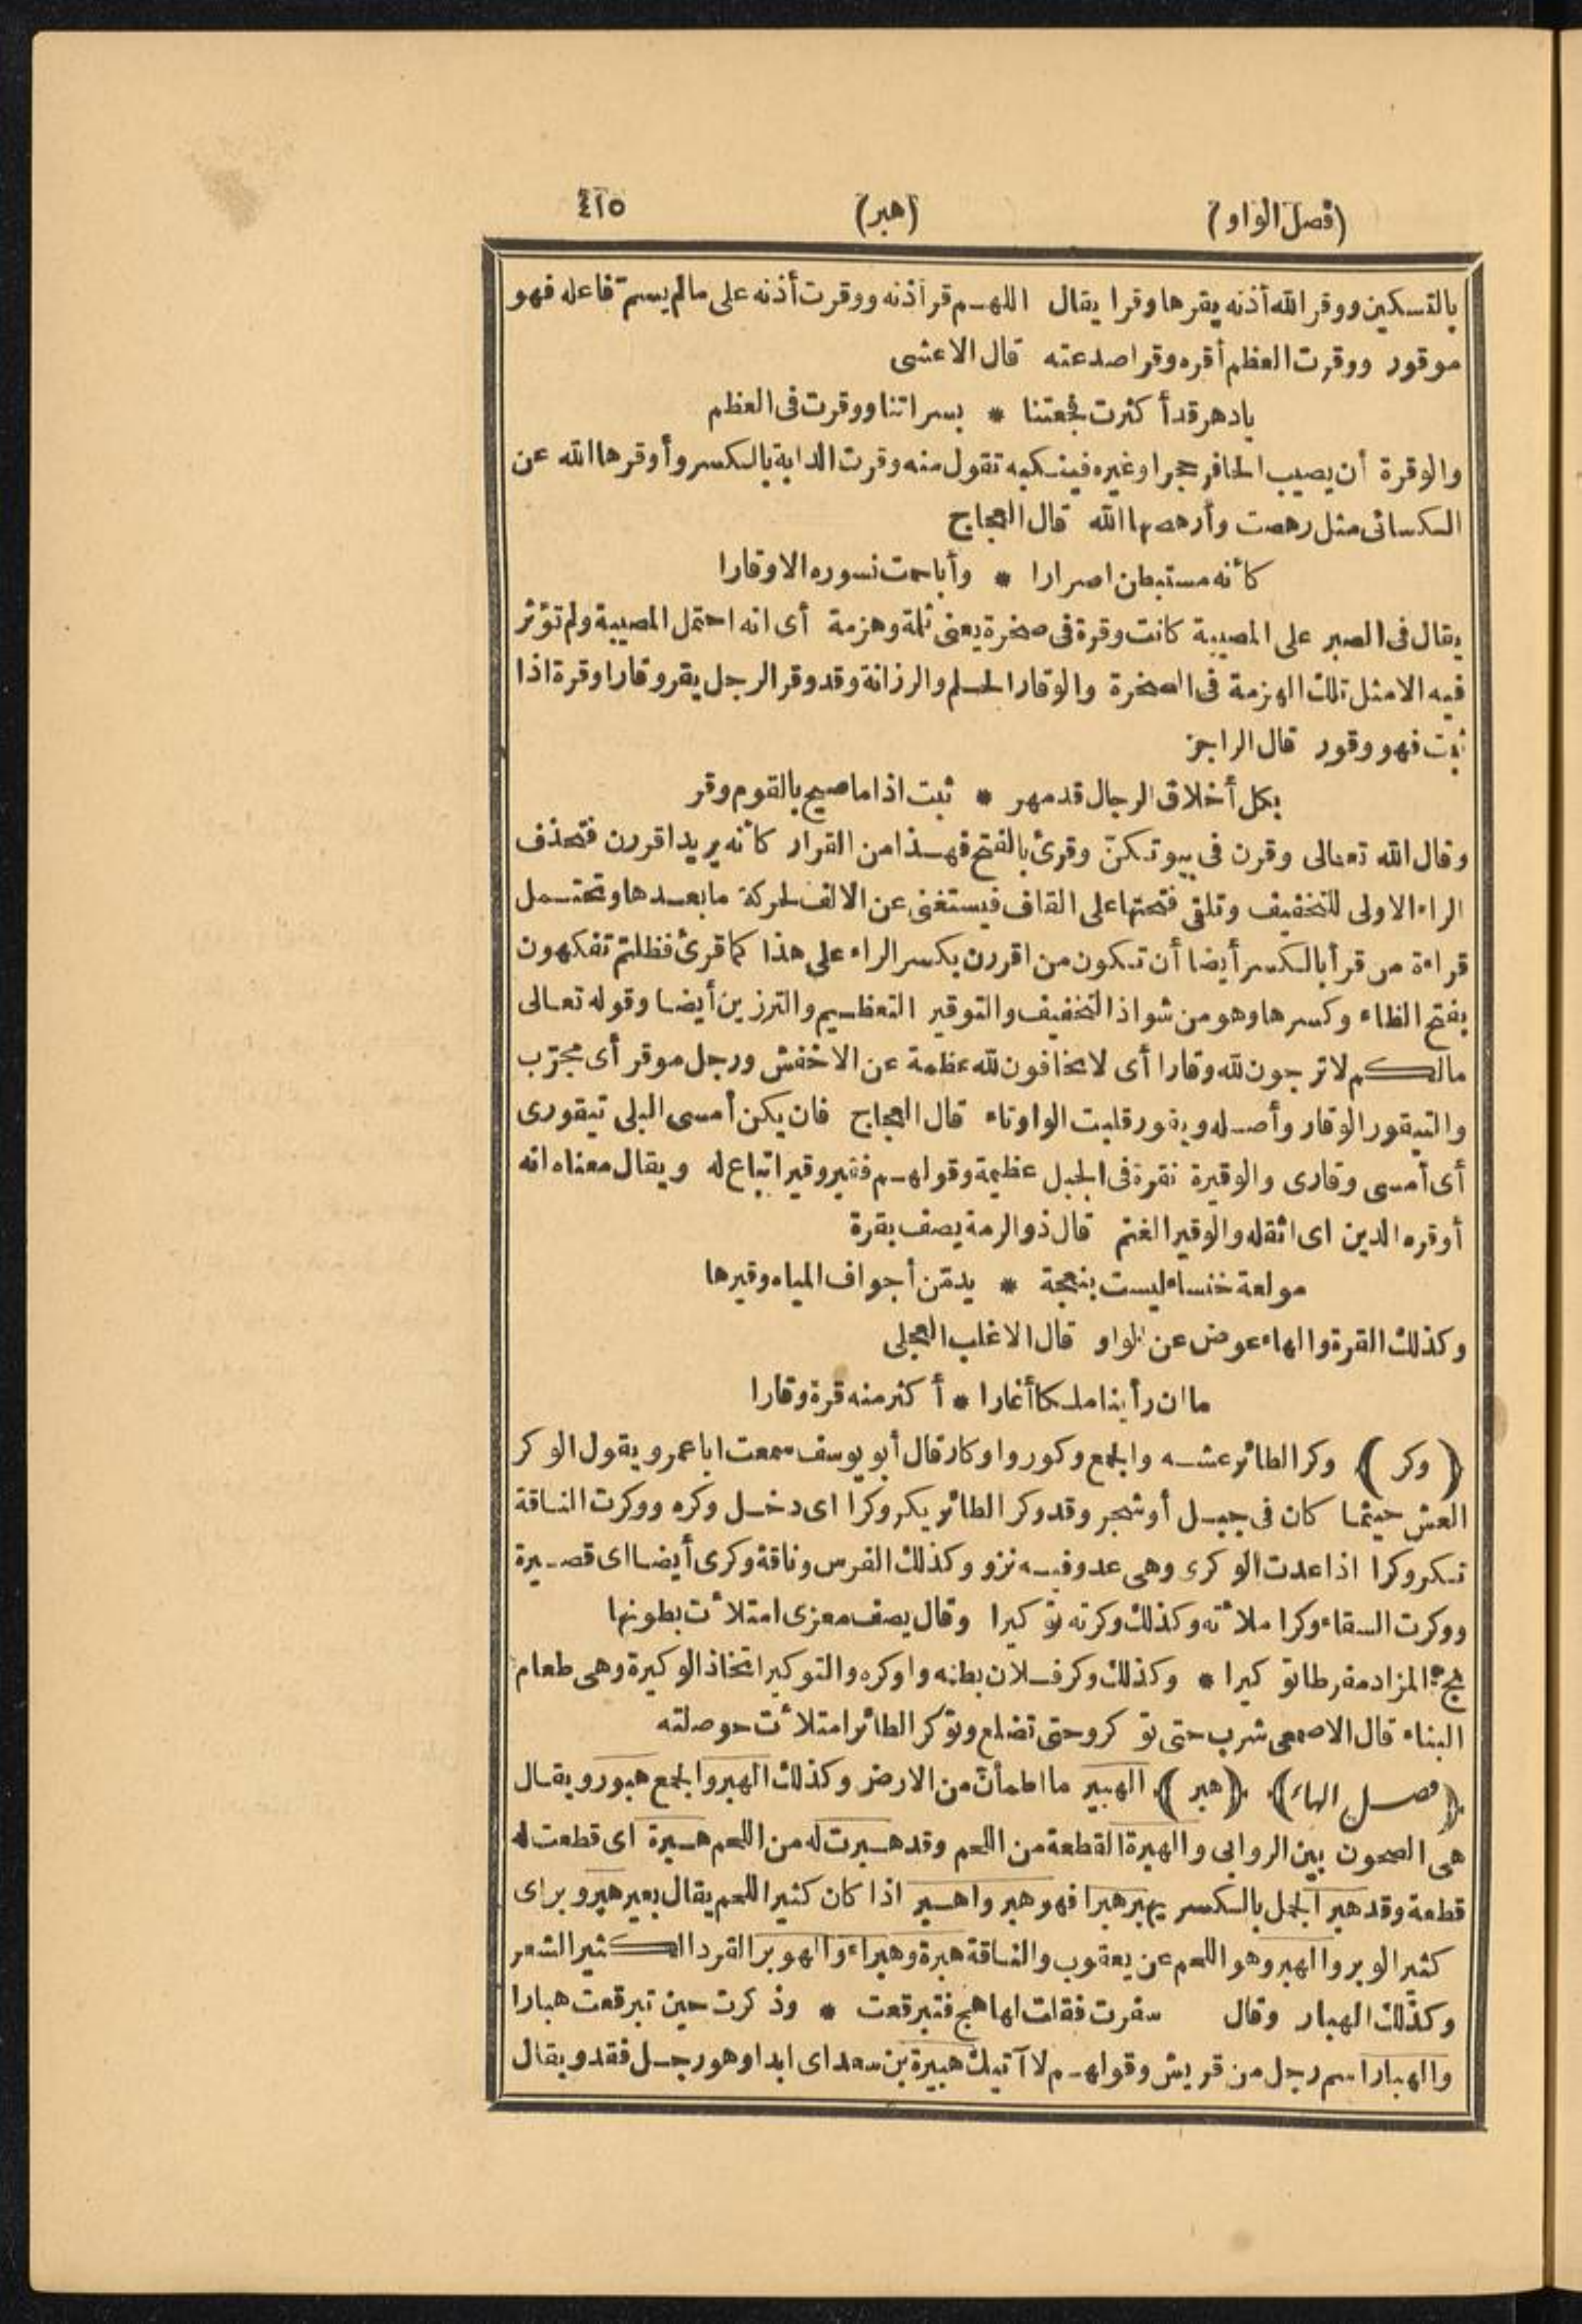 (فصل الواو) (هبر) ٤١٥
بالتسكين ووقر الله أذنه يقرها وقرا يقال اللهم قر أذنه ووقرت أذنه على مالم يسم فاعله فهو
موقور ووقرت العظم أقره وقرا صدعته قال الاعشى
يادهر قد أكثرت فجعتنا * بسراتنا ووقرت فى العظم
والوقرة أن يصيب الحافر حجرا وغيره فينكبه تقول منه وقرت الدابة بالكسر وأوقرها الله عن
الكسائى مثل رهصت وأرهصها الله قال العجاج
كأنه مستبطن اصرارا * وأبا حمت نسوره الاوقارا
يقال فى الصبر على المصيبة كانت وقرة فى صخرة يعنى ثلمة وهزمة أى انه احتمل المصيبة ولم تؤثر
فيه الامثل تلك الهزمة فى الصخرة والوقار الحلم والرزانة وقد وقر الرجل يقر وقارا وقرة اذا
ثبت فهو وقور قال الراجز
بكل أخلاق الرجال قد مهر * ثبت اذا ما صيح بالقوم وقر
وقال الله تعالى وقرن فى بيوتكنّ وقرئ بالفتح فهذا من القرار كأنه يريد اقررن فتحذف
الراء الاولى للتخفيف وتلقى فتحتها على القاف فيستغنى عن الالف لحركة ما بعدها وتحتمل
قراءة من قرأ بالكسر أيضا أن تكون من اقررن بكسر الراء على هذا كما قرئ فظلتم تفكهون
بفتح الظاء وكسرها وهو من شواذ التخفيف والتوقير التعظيم والترزين أيضا وقوله تعالى
مالكم لا ترجون لله وقارا أى لا تخافون لله عظمة عن الاخفش ورجل موقر أى مجرّب
والتيقور الوقار وأصله ويقور قلبت الواو تاء قال العجاج فان يكن أمسى البلى تيقورى
أى أمسى وقارى والوقيرة نقرة فى الجبل عظيمة وقولهم فقير وقير اتباع له ويقال معناه انه
أوقره الدين اى اثقله والوقير الغنم قال ذو الرمة يصف بقرة
مولعة خنساء ليست بنعجة * يدمّن أجواف المياه وقيرها
وكذلك القرة والهاء عوض عن الواو قال الاغلب العجلى
ما ان رأينا ملكا أغارا * أكثر منه قرة وقارا
﴿وكر﴾ وكر الطائر عشه والجمع وكور واوكار قال أبو يوسف سمعت ابا عمرو يقول الوكر
العش حيثما كان فى جبل أو شجر وقد وكر الطائر يكر وكرا اى دخل وكره ووكرت الناقة
تكر وكرا اذا عدت الوكرى وهى عدو فيه نزو وكذلك الفرس وناقة وكرى أيضا اى قصيرة
ووكرت السقاء وكرا ملأته وكذلك وكرته توكيرا وقال يصف معزى امتلأت بطونها
بج المزاد مفرطا توكيرا * وكذلك وكر فلان بطنه واوكره والتوكير اتخاذ الوكيرة وهى طعام
البناء قال الاصمعى شرب حتى توكر وحتى تضلع وتوكر الطائر امتلأت حوصلته
﴿فصل الهاء﴾ ﴿هبر﴾ الهبير ما اطمأنّ من الارض وكذلك الهبر والجمع هبور ويقال
هى الصحون بين الروابى والهبرة القطعة من اللحم وقد هبرت له من اللحم هبرة اى قطعت له
قطعة وقد هبر الجمل بالكسر يهبر هبرا فهو هبر واهبر اذا كان كثير اللحم يقال بعير هبر وبر اى
كثير الوبر والهبر وهو اللحم عن يعقوب والناقة هبرة وهبراء والهوبر القرد الكثير الشعر
وكذلك الهبار وقال سفرت فقلت لها هج فتبرقعت * وذكرت حين تبرقعت هبارا
والهبار اسم رجل من قريش وقولهم لا آتيك هبيرة بن سعد اى ابدا وهو رجل فقد ويقال